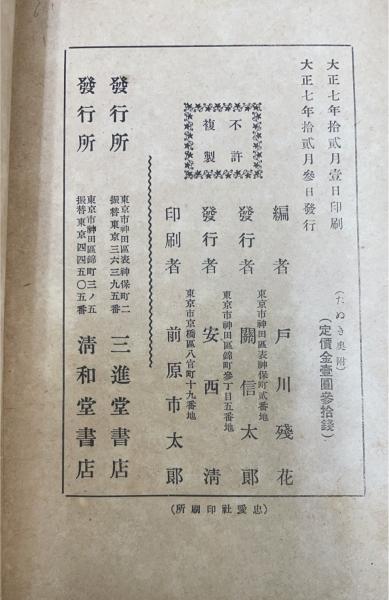 大正七年拾貳月壹日印刷
大正七年拾貳月參日發行
(たぬき奥附)
(定價金壹圓參拾錢)
不許
複製
編者 戸川殘花
東京市神田區表神保町貳番地
發行者 關信太郎
東京市神田區錦町參丁目五番地
發行者 安西淸
東京市京橋區八官町十九番地
印刷者 前原市太郎
發行所 東京市神田區表神保町二 振替東京三六三九五番 三進堂書店
發行所 東京市神田區錦町三ノ五 振替東京四四五〇五番 淸和堂書店
(忠愛社印刷所)